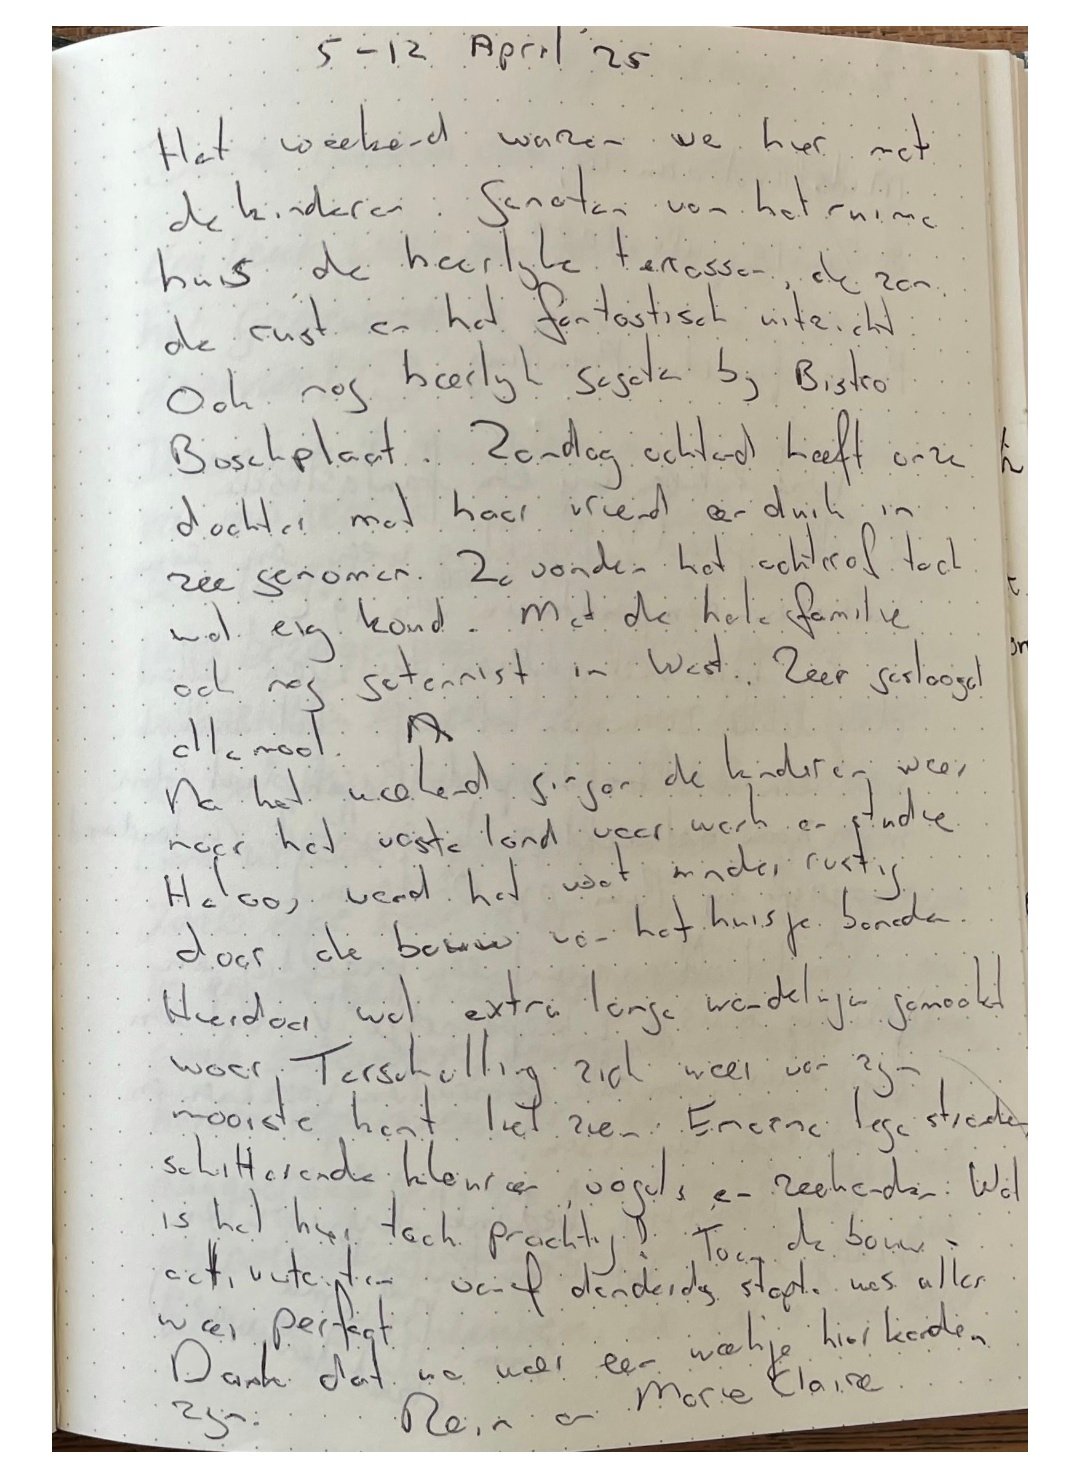 5-12 April '25
Het weekend waren we hier met
de kinderen. Genoten van het ruime
huis, de heerlyke terrassen, de zon,
de rust en het fantastisch uitzicht.
Ook nog heerlyk gegeten by Bistro
Boschplaat. Zondag ochtend heeft onze
dochter met haar vriend een duik in
zee genomen. Ze vonden het achteraf toch
wel erg koud. Met de hele familie
ook nog getennist in West. Zeer geslaagd
allemaal.
Na het weekend gingen de kinderen weer
naar het vaste land voor werk en studie
Helaas werd het wat minder rustig
door de bouw van het huisje beneden.
Hierdoor wel extra lange wandelingen gemaakt
waar Terschelling zich weer van zyn
mooiste kant liet zien. Enorme lege stranden
schitterende kleuren, vogels en zeehonden. Wat
is het hier toch prachtig! Toen de bouw-
activiteiten vanaf donderdag stopte was alles
weer perfect
Dank dat we weer een weekje hier konden
zyn. Rein en Marie Claire